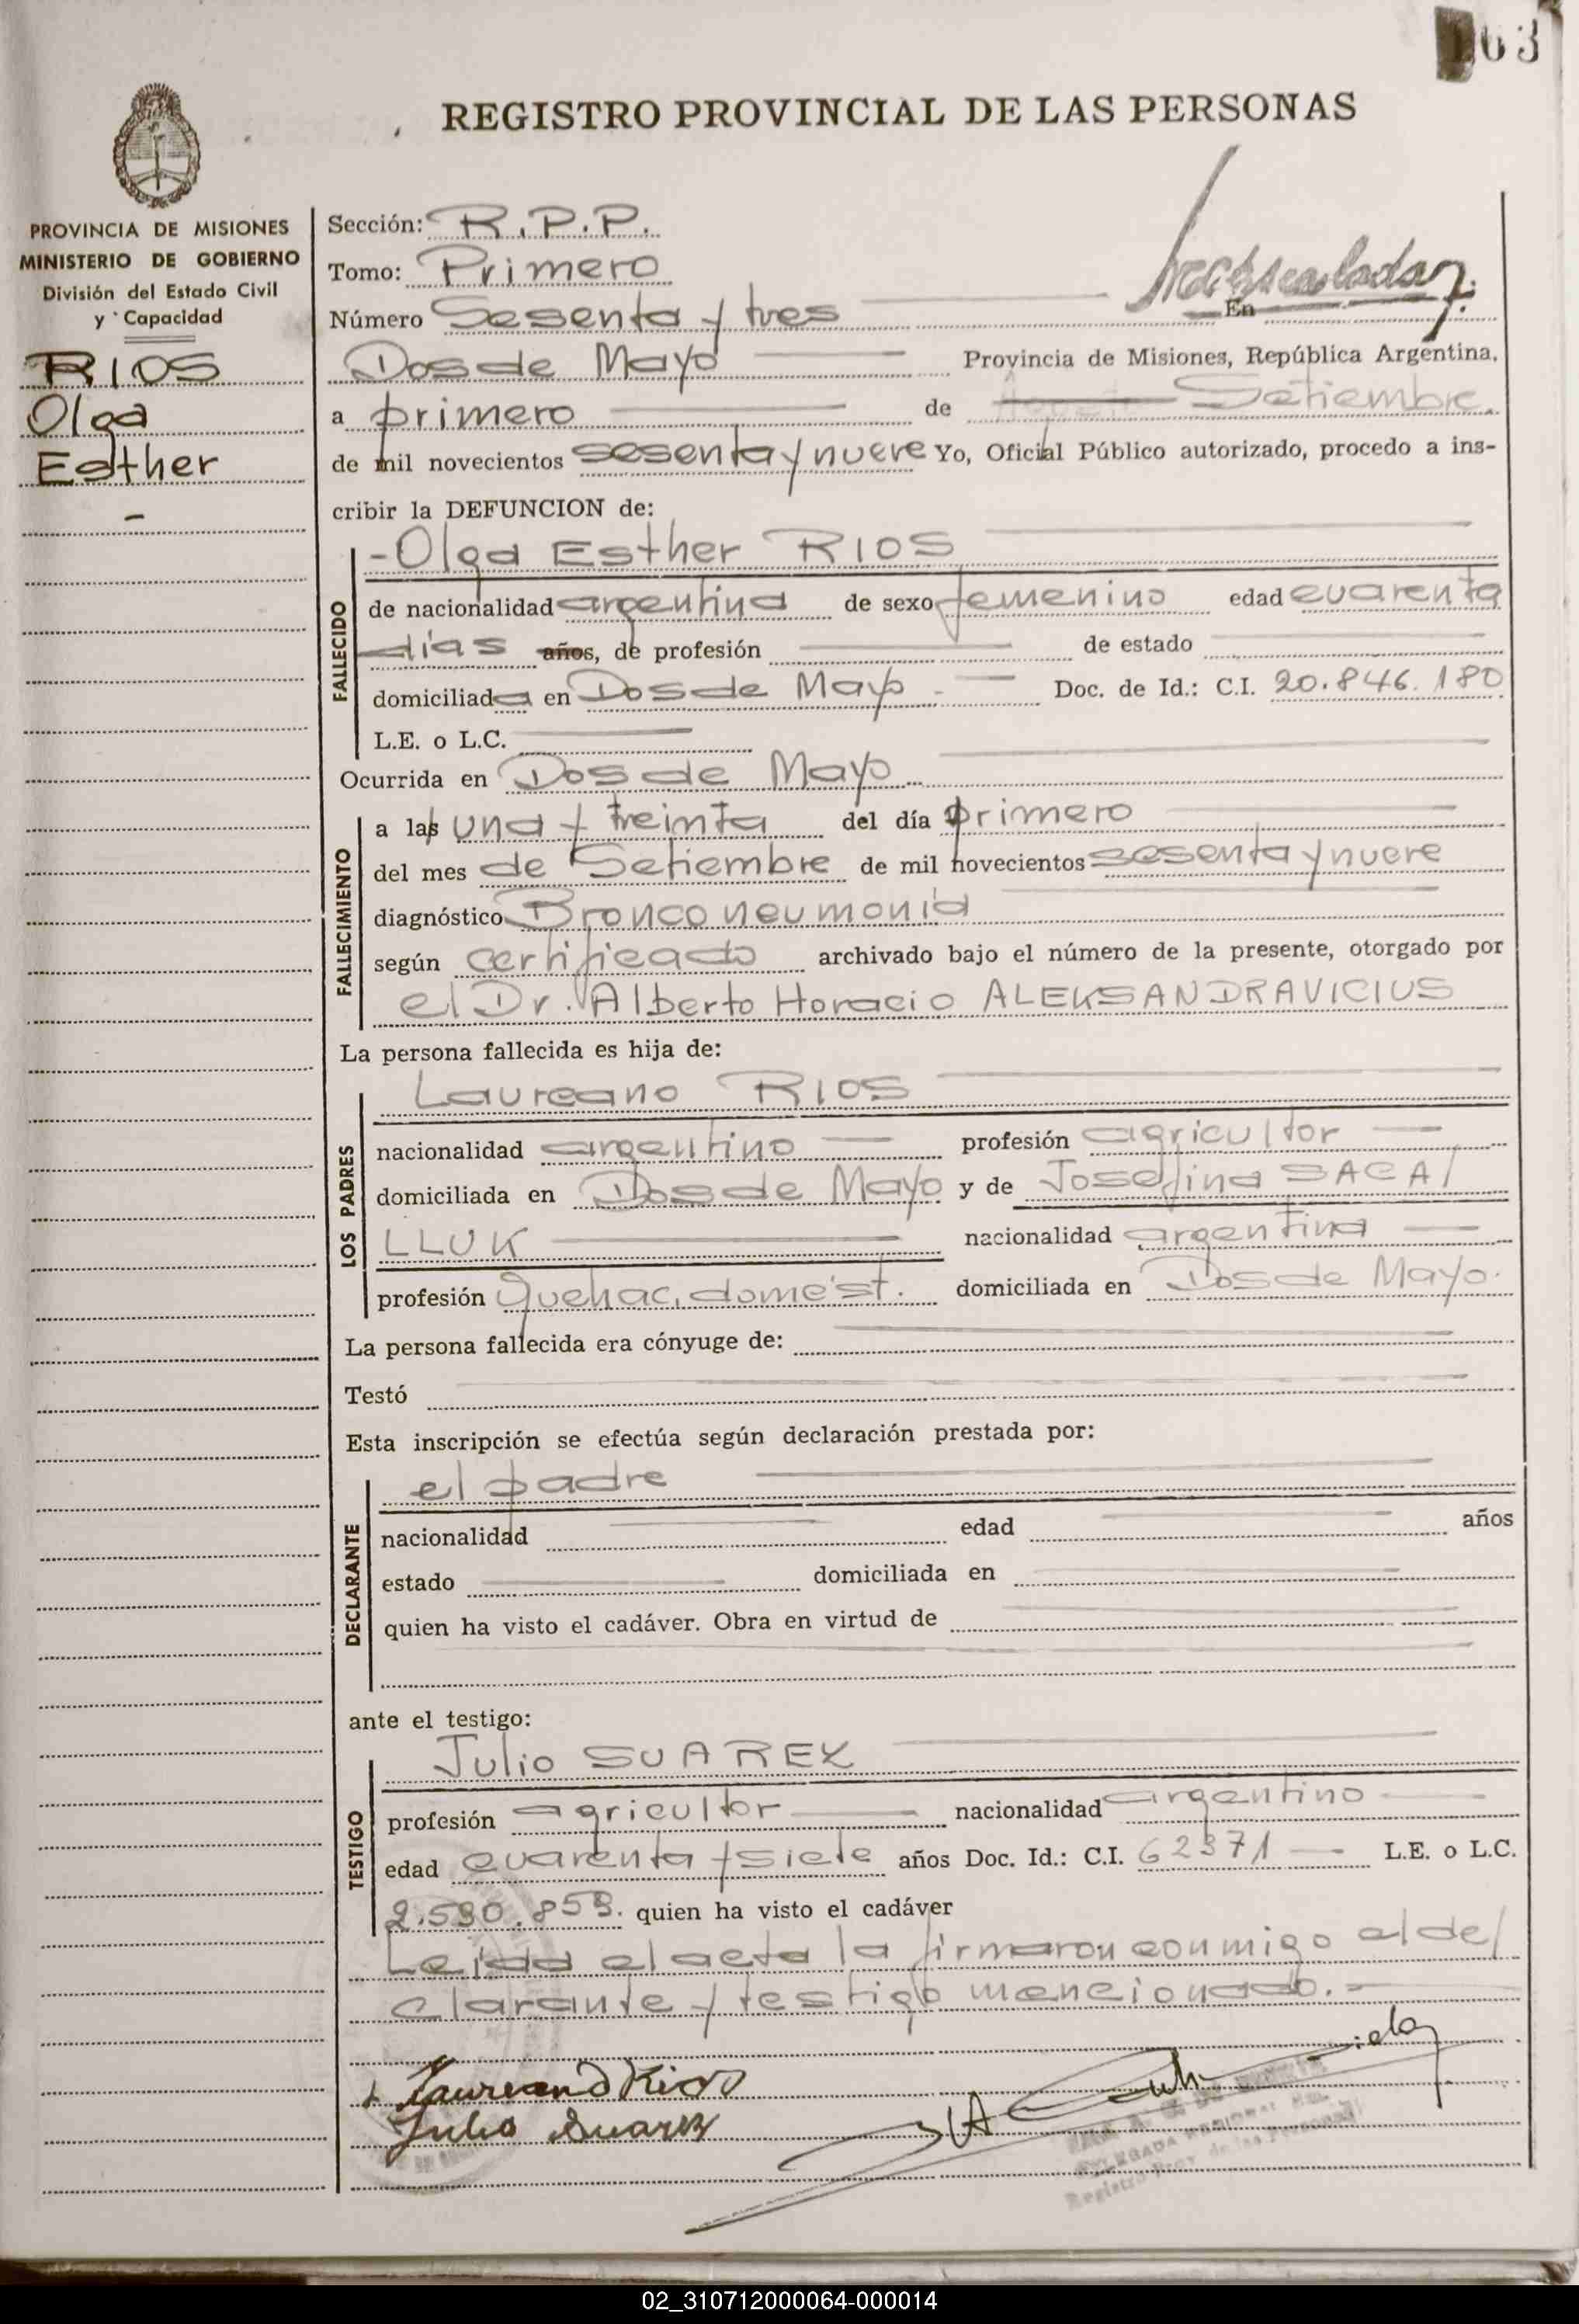 63
REGISTRO PROVINCIAL DE LAS PERSONAS
PROVINCIA DE MISIONES
MINISTERIO DE GOBIERNO
División del Estado Civil
y Capacidad
RIOS
Olga
Esther
Sección: R.P.P.
Tomo: Primero
Número Sesenta y tres En
Dos de Mayo Provincia de Misiones, República Argentina,
a primero de Setiembre
de mil novecientos sesenta y nueve Yo, Oficial Público autorizado, procedo a ins-
cribir la DEFUNCION de:
-Olga Esther RIOS
FALLECIDO
de nacionalidad argentina de sexo femenino edad cuarenta
días años, de profesión de estado
domiciliada en Dos de Mayo - Doc. de Id.: C.I. 20.846.180
L.E. o L.C.
Ocurrida en Dos de Mayo
FALLECIMIENTO
a las una y treinta del día primero
del mes de Setiembre de mil novecientos sesenta y nueve
diagnóstico Bronconeumonia
según certificado archivado bajo el número de la presente, otorgado por
el Dr. Alberto Horacio ALEKSANDRAVICIUS
La persona fallecida es hija de:
LOS PADRES
Laureano RIOS
nacionalidad argentino profesión agricultor
domiciliada en Dos de Mayo y de Josefina SACAL
LLUK nacionalidad argentina
profesión Quehac. domést. domiciliada en Dos de Mayo.
La persona fallecida era cónyuge de:
Testó
Esta inscripción se efectúa según declaración prestada por:
DECLARANTE
el padre
nacionalidad edad años
estado domiciliada en
quien ha visto el cadáver. Obra en virtud de
ante el testigo:
TESTIGO
Julio SUAREZ
profesión agricultor nacionalidad argentino
edad cuarenta y siete años Doc. Id.: C.I. 62371 L.E. o L.C.
2.590.859. quien ha visto el cadáver
Leida el acta la firmaron conmigo el de
clarante y testigo mencionado.-
Laureano Rios
Julio Suarez
02_310712000064-000014